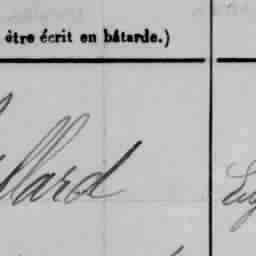 être écrit en bâtarde.)
llard